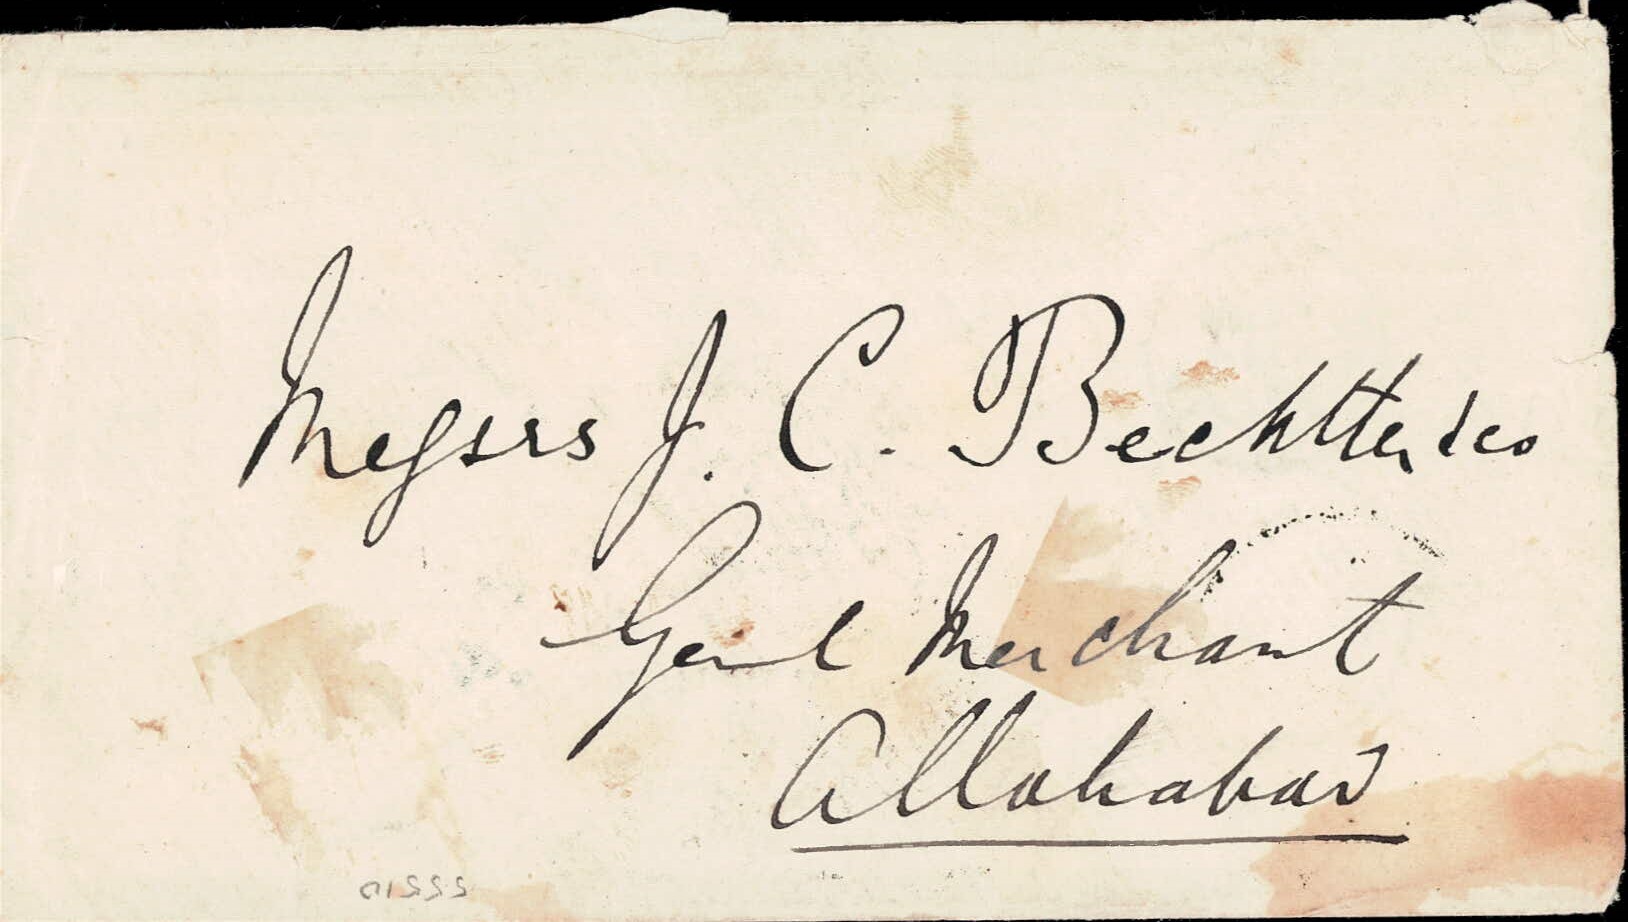 Messrs J. C. Bechtler & Co
Genl Merchant
Allahabad